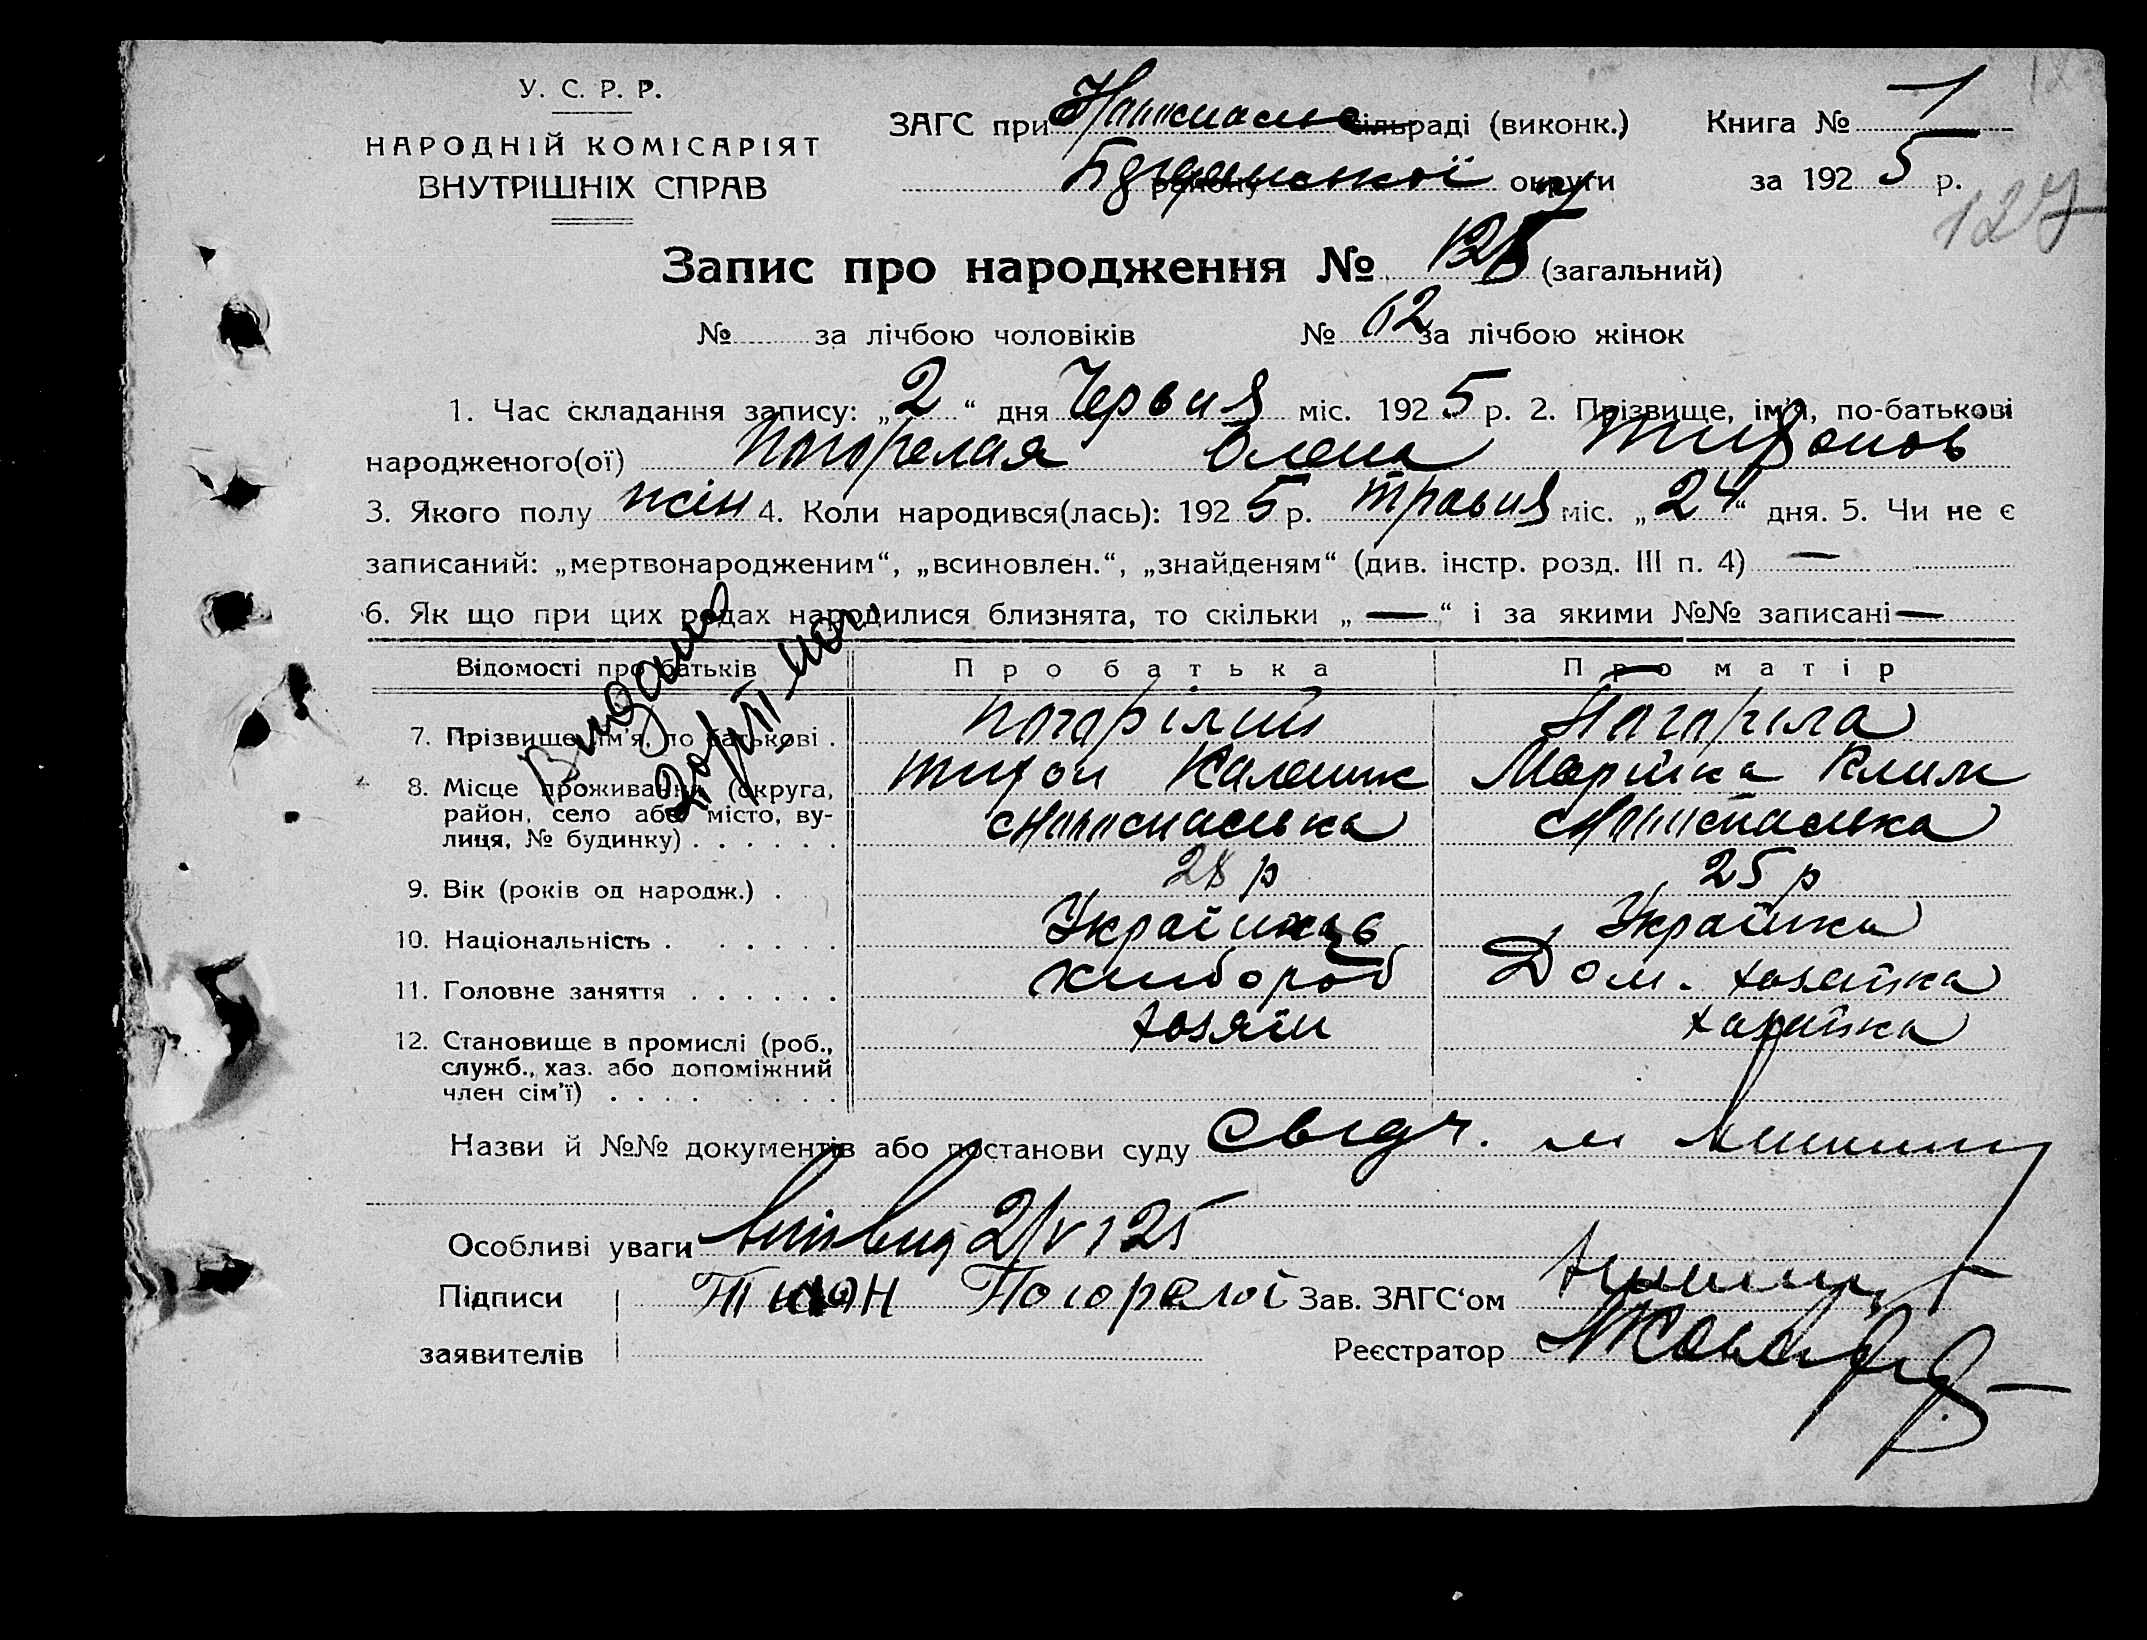 У. С. Р. Р.
НАРОДНІЙ КОМІСАРІЯТ
ВНУТРІШНІХ СПРАВ
ЗАГС при сільраді (виконк.)
району округи
Книга № 1
за 1925 р.
127
Запис про народження № 125 (загальний)
№ за лічбою чоловіків № 62 за лічбою жінок
1. Час складання запису: „2“ дня Червня міс. 1925 р. 2. Прізвище, ім'я, по-батькові
народженого(ої) Погорелая Олена Тифонов
3. Якого полу жін 4. Коли народився(лась): 1925 р. травня міс. „24“ дня. 5. Чи не є
записаний: „мертвонародженим“, „всиновлен.“, „знайденям“ (див. інстр. розд. III п. 4) —
6. Як що при цих родах народилися близнята, то скільки „—“ і за якими №№ записані —
Відомості про батьків Про батька Про матір
7. Прізвище, ім'я, по батькові . Погорілий Погоріла
Тихон Марійка Клим
8. Місце проживання (округа,
район, село або місто, ву-
лиця, № будинку) . . . . . .
9. Вік (років од народж.) . 28 р 25 р
10. Національність . . . . . . Українець Українка
11. Головне заняття . . . . . . хлибороб Дом. хозайка
12. Становище в промислі (роб.,
служб., хаз. або допоміжний
член сім'ї) . . . . . . . . хозяїн хазайка
Видано
Назви й №№ документів або постанови суду Свідч.
Особливі уваги
Підписи Тихон Погорелої Зав. ЗАГС‘ом
заявителів Реєстратор